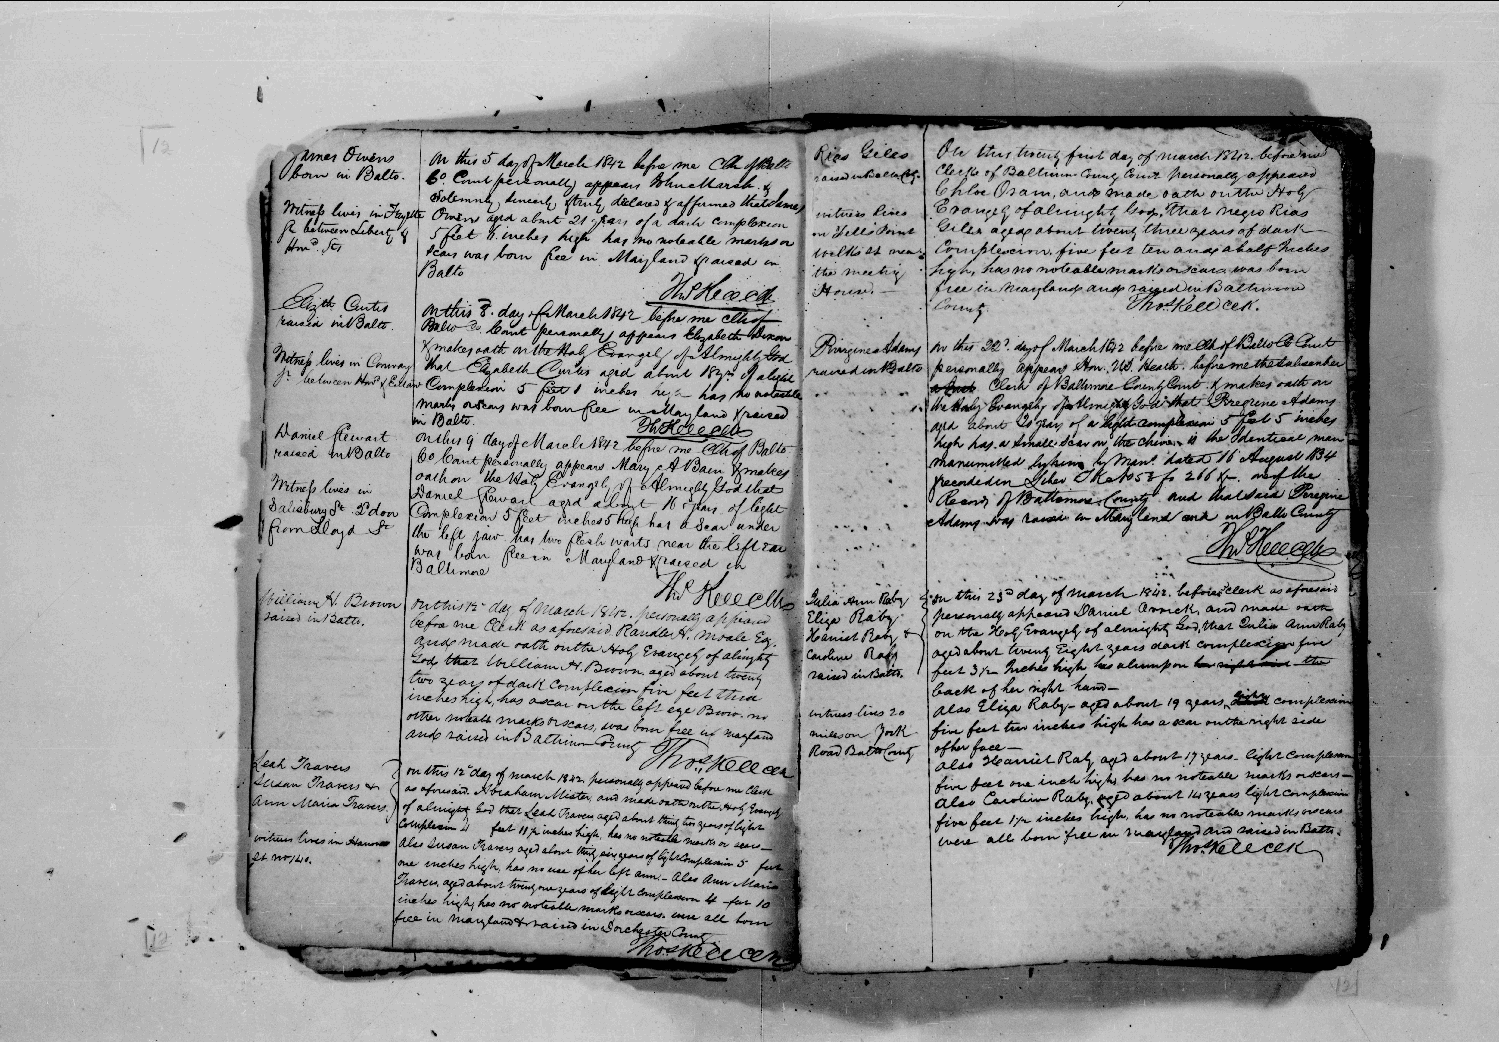 James Owens
born in Balto.
Witness lives in Fayette
St. between Liberty &
How'd. Sts
On this 5 day of March 1842 before me Clk of Balto
Co Court personally appears John Marsh &
Solemnly, sincerely & truly declared & affirmed that James
Owens aged about 21 years of a dark complexion
5 feet 6 inches high has no noteable marks or
scars was born free in Maryland & raised in
Balto
Thos Kell Clk
Elizth Curtis
raised in Balto.
Witness lives in Conway
St. between Howd & Eutaw
On this 8 day of March 1842 before me Clk of
Balto Co Court personally appears Elizabeth Dixon
& makes oath on the Holy Evangely of Almighty God
that Elizabeth Curtis aged about 18 yrs of a light
Complexion 5 feet 1 inches high has no noteable
marks or scars was born free in Maryland & raised
in Balto.
Thos Kell Clk
Daniel Stewart
raised in Balto
Witness lives in
Salisbury St. 2 door
from Lloyd St
On this 9 day of March 1842 before me Clk of Balto
Co Court personally appears Mary A Bain & makes
oath on the Holy Evangely of Almighty God that
Daniel Stewart aged about 16 years of light
Complexion 5 feet inches 5 high has a scar under
the left jaw has two flesh warts near the left ear
was born free in Maryland & raised in
Baltimore
Thos Kell Clk
William H. Brown
raised in Balto.
On this 12 day of March 1842, personally appeared
before me Clerk as aforesaid Randle H. Moale Esq.
and made oath on the Holy Evangely of almighty
God that William H. Brown aged about twenty
two years of dark complexion five feet three
inches high, has a scar on the left eye Brow. no
other noteable marks or scars, was born free in maryland
and raised in Baltimore County
Thos. Kell Clk
Leah Travers
Susan Travers &
Ann Maria Travers.
witness lives in Hanover
St no 140.
On this 12th day of march 1842, personally appeared before me Clerk
as aforesaid. Abraham Mister, and made oath on the Holy Evangely
of almighty God that Leah Travers aged about thirty two years of light
complexion 4 feet 11 1/2 inches high, has no noteable marks or scars—
Also Susan Travers aged about thirty six years of light complexion 5 feet
one inches high, has no use of her left arm.— Also Ann Maria
Travers, aged about twenty one years of light complexion 4 feet 10
inches high, has no noteable marks or scars. were all born
free in maryland & raised in Dorchester County
Thos Kell Clk
Rias Giles
raised in Balto Cty.
witness lives
on Fells Point
Wolfe St near
the meeting
House.—
On this twenty first day of march 1842. before me
Clerk of Baltimore County Court personally appeared
Chloe Osam, and made oath on the Holy
Evangely of almighty God, that negro Rias
Giles aged about twenty three years of dark
complexion, five feet ten and a half inches
high, has no noteable marks or scars was born
free in maryland and raised in Baltimore
County
Thos. Kell Clk.
Peregrine Adams
raised in Balto
On this 22d. day of March 1842 before me Clk of Balto Co Court
personally appears Hon. U.S. Heath. before me the subscriber
Clerk of Baltimore County Court. & makes oath on
the Holy Evangely of Almighty God that Peregrine Adams
aged about years of a light complexion 5 feet 5 inches
high has a small scar on the chin is the identical man
manumitted by him by Mant. dated 16 August 1834
recorded in Liber TK No 53 fo 266 &c. one of the
Records of Baltimore County and that said Peregrine
Adams was raised in Maryland and in Balto County
Thos Kell Clk
Julia Ann Raby
Eliza Raby
Harriet Raby &
Caroline Raby
raised in Balto.
witness lives 20
miles on York
Road Balto County
On this 23d day of march 1842. before Clerk as aforesaid
personally appeared Daniel and made oath
on the Holy Evangely of almighty God, that Julia Ann Raby
aged about twenty Eight years dark complexion five
feet 3 1/2 inches high has a lump on her right hand the
back of her right hand—
also Eliza Raby— aged about 19 years, light complexion
five feet two inches high has a scar on the right side
of her face—
also Harriet Raby aged about 17 years. light complexion
five feet one inch high, has no noteable marks or scars—
Also Caroline Raby, aged about 14 years light complexion
five feet 1 1/2 inches high, has no noteable marks or scars
were all born free in maryland and raised in Balto.
Thos Kell Clk